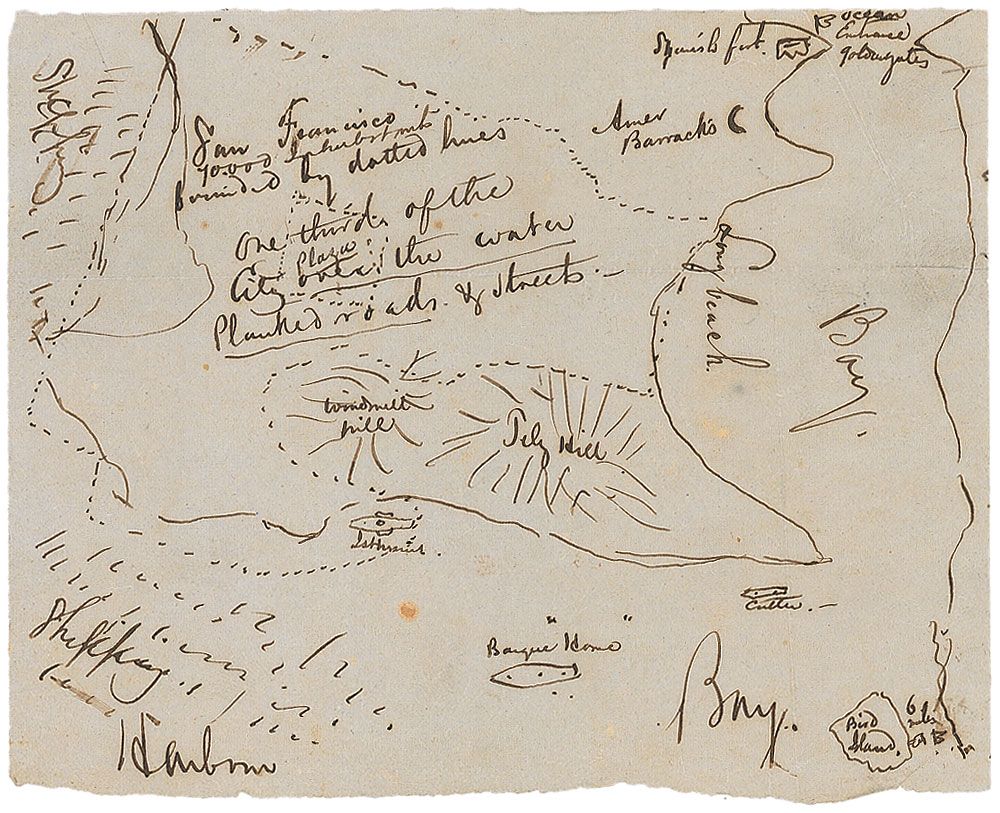 Ocean
Entrance
goldengates
Spanish fort.
Amer
Barracks
Shipping
San Francisco
70.000 Inhabitants
bounded by dotted lines
One third of the
Plaza
City over the water
Planked roads & Streets.
Long beach.
Bay.
Windmill
hill
Tely Hill
Isthmus.
Cutter.
Barque "Home"
Shipping
Bay.
Bird
Island.
6
miles
Harbour